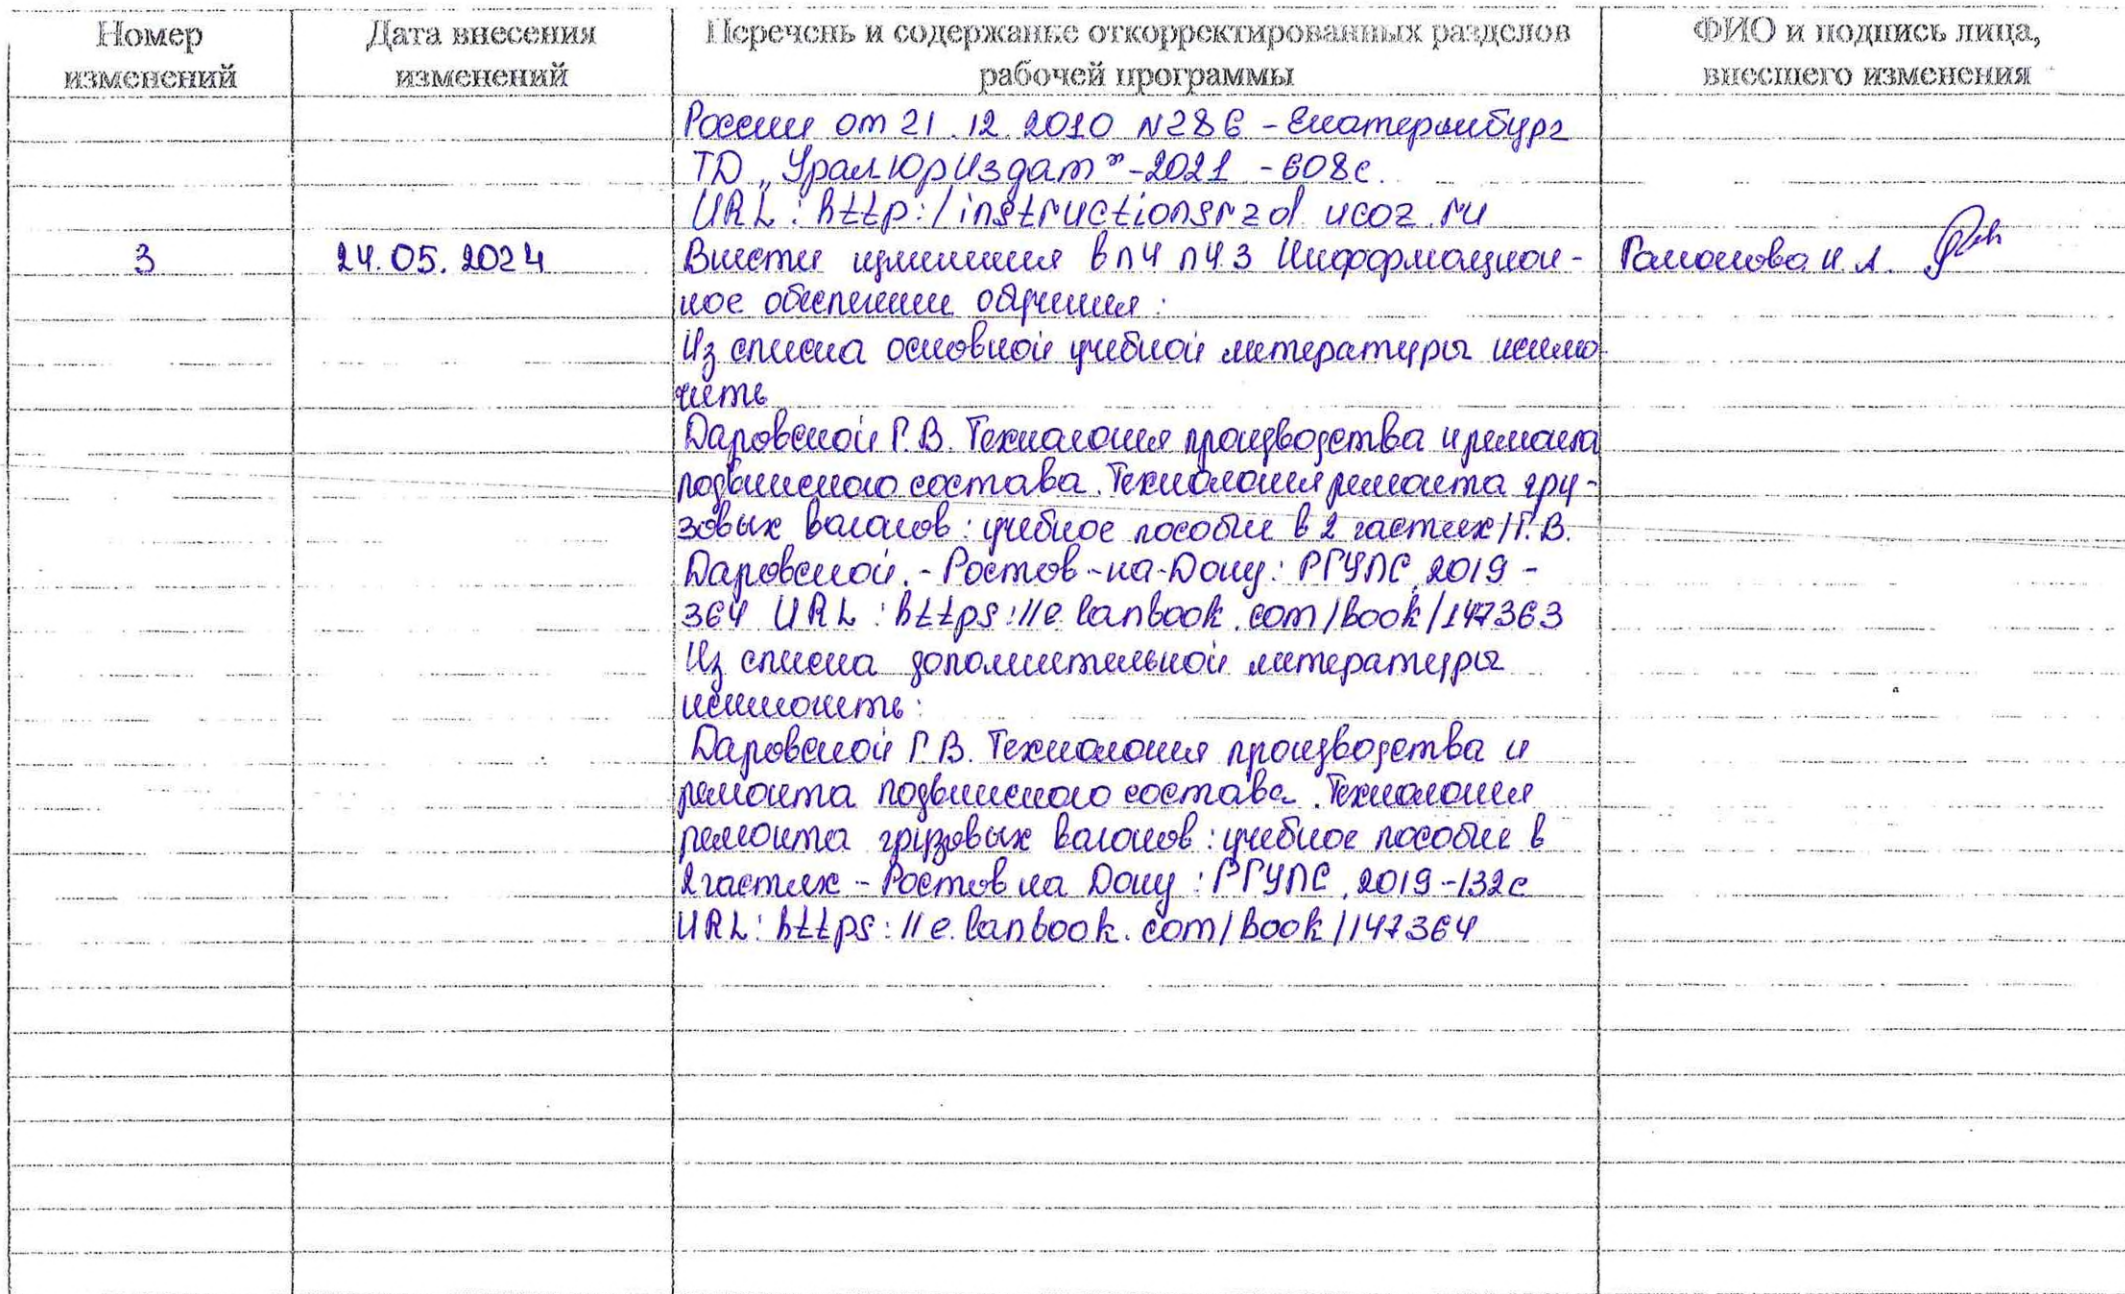 Номер
изменений
Дата внесения
изменений
Перечень и содержание откорректированных разделов
рабочей программы
ФИО и подпись лица,
внесшего изменения
России от 21.12.2010 N286 - Екатеринбург
ТД „УралЮрИздат" - 2021 - 608с.
URL: http:/instructionsrzd.ucoz.ru
3
24.05.2024
Внести изменения в п4 п4.3 Информацион-
ное обеспечение обучения:
Из списка основной учебной литературы исклю
чить
Даровской Г.В. Технология производства и ремонта
подвижного состава. Технология ремонта гру-
зовых вагонов: учебное пособие в 2 частях/Г.В.
Даровской. - Ростов-на-Дону: РГУПС, 2019 -
364 URL: https://e.lanbook.com/book/147363
Из списка дополнительной литературы
исключить:
Даровской Г.В. Технология производства и
ремонта подвижного состава. Технология
ремонта грузовых вагонов: учебное пособие в
2 частях - Ростов на Дону: РГУПС, 2019 - 132с
URL: https://e.lanbook.com/book/147364
И.А.